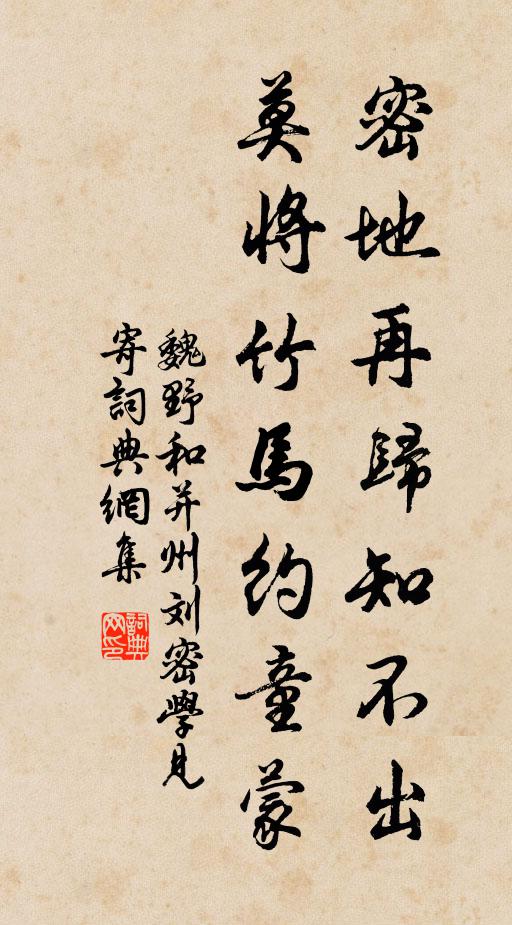 密地再歸知不出
莫將竹馬約童蒙
魏野和并州刘密學見
寄詞典網集
詞典网印